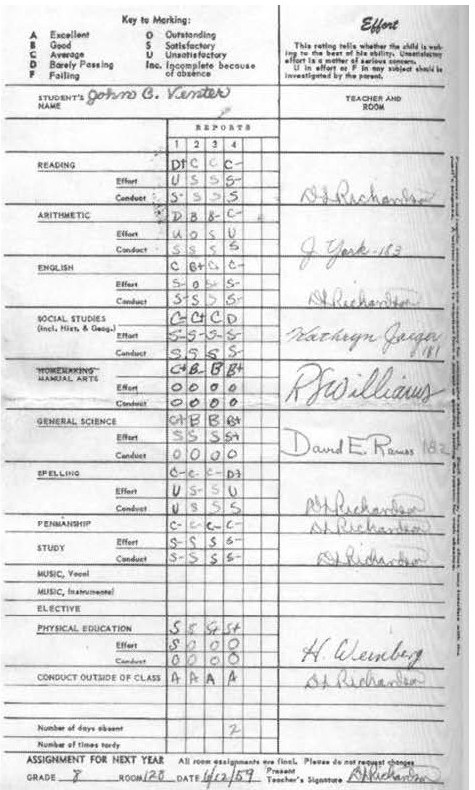 Key to Marking:
A Excellent O Outstanding
B Good S Satisfactory
C Average U Unsatisfactory
D Barely Passing Inc. Incomplete because
F Failing of absence
Effort
This rating tells whether the child is work-
ing to the best of his ability. Unsatisfactory
effort is a matter of serious concern.
U in effort or F in any subject should be
investigated by the parent.
STUDENT'S NAME John C. Venter
TEACHER AND ROOM
REPORTS
1 2 3 4
READING D+ C C C-
Effort U S S S-
Conduct S- S S S D L Richardson
ARITHMETIC D B B- C-
Effort U O S U
Conduct S S S S J. York-183
ENGLISH C B+ C C-
Effort S- O S+ S-
Conduct S- S S S- D L Richardson
SOCIAL STUDIES C- C+ C D
(incl. Hist. & Geog.) Effort S- S- S- S- Kathryn Jaeger
Conduct S S S S- 181
HOMEMAKING
MANUAL ARTS C+ B- B B+
Effort O O O O R S Williams
Conduct O O O O
GENERAL SCIENCE C+ B B B+
Effort S S S S+ David E. Ramos 182
Conduct O O O O
SPELLING C- C- C- D+
Effort U S- S U
Conduct U S S S D L Richardson
PENMANSHIP C- C- C- C- D L Richardson
STUDY Effort S- S S S-
Conduct S- S S S- D L Richardson
MUSIC, Vocal
MUSIC, Instrumental
ELECTIVE
PHYSICAL EDUCATION S S S+ S+
Effort S O O O H. Weinberg
Conduct O O O O
CONDUCT OUTSIDE OF CLASS A A A A D L Richardson
Number of days absent 2
Number of times tardy
ASSIGNMENT FOR NEXT YEAR All room assignments are final. Please do not request changes
GRADE 8 ROOM 128 DATE 6/12/59 Present Teacher's Signature D L Richardson